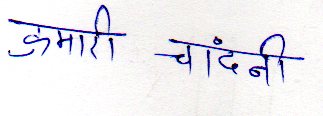 कुमारी चांदनी